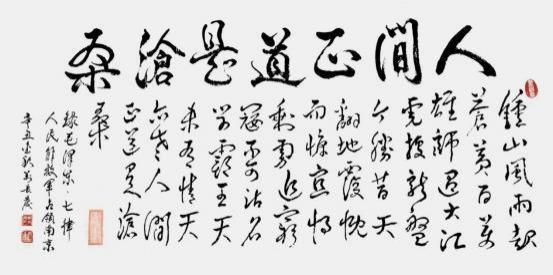 人間正道是滄桑
鍾山風雨起
蒼黃百萬
雄師過大江
虎踞龍盤
今勝昔天
翻地覆慨
而慷宜將
剩勇追窮
寇不可沽名
學霸王天
若有情天
亦老人間
正道是滄
桑
錄毛澤東·七律
人民解放軍占領南京
辛丑